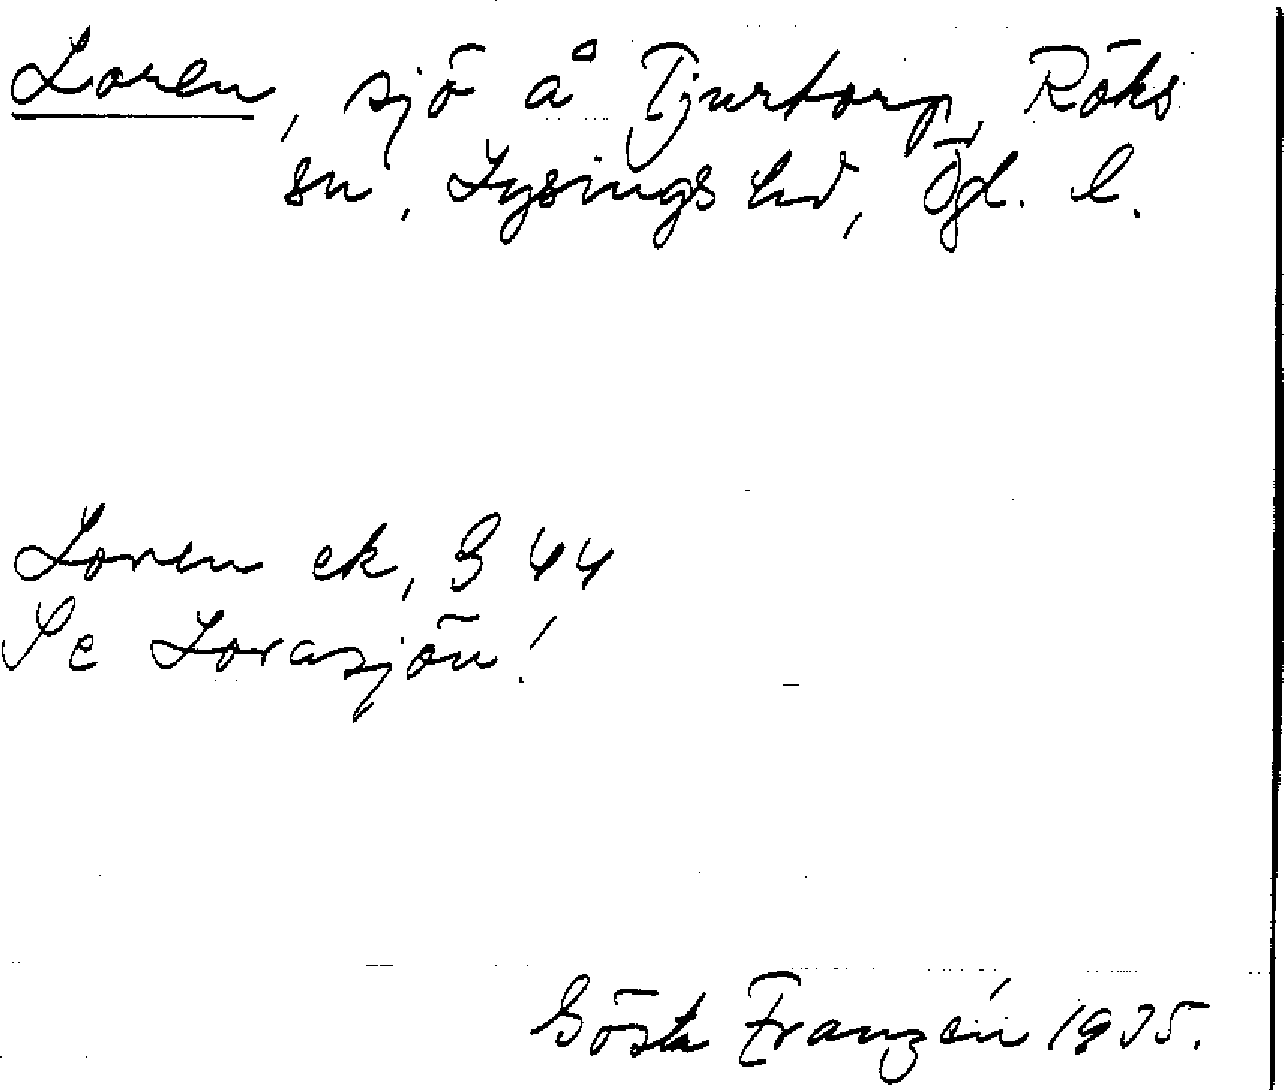 Loren, sjö å Tjurtorp, Röks
sn, Lysings hd, Ögl. l.
Loren ek, G 44
Se Lorasjön!
Gösta Franzén 1935.